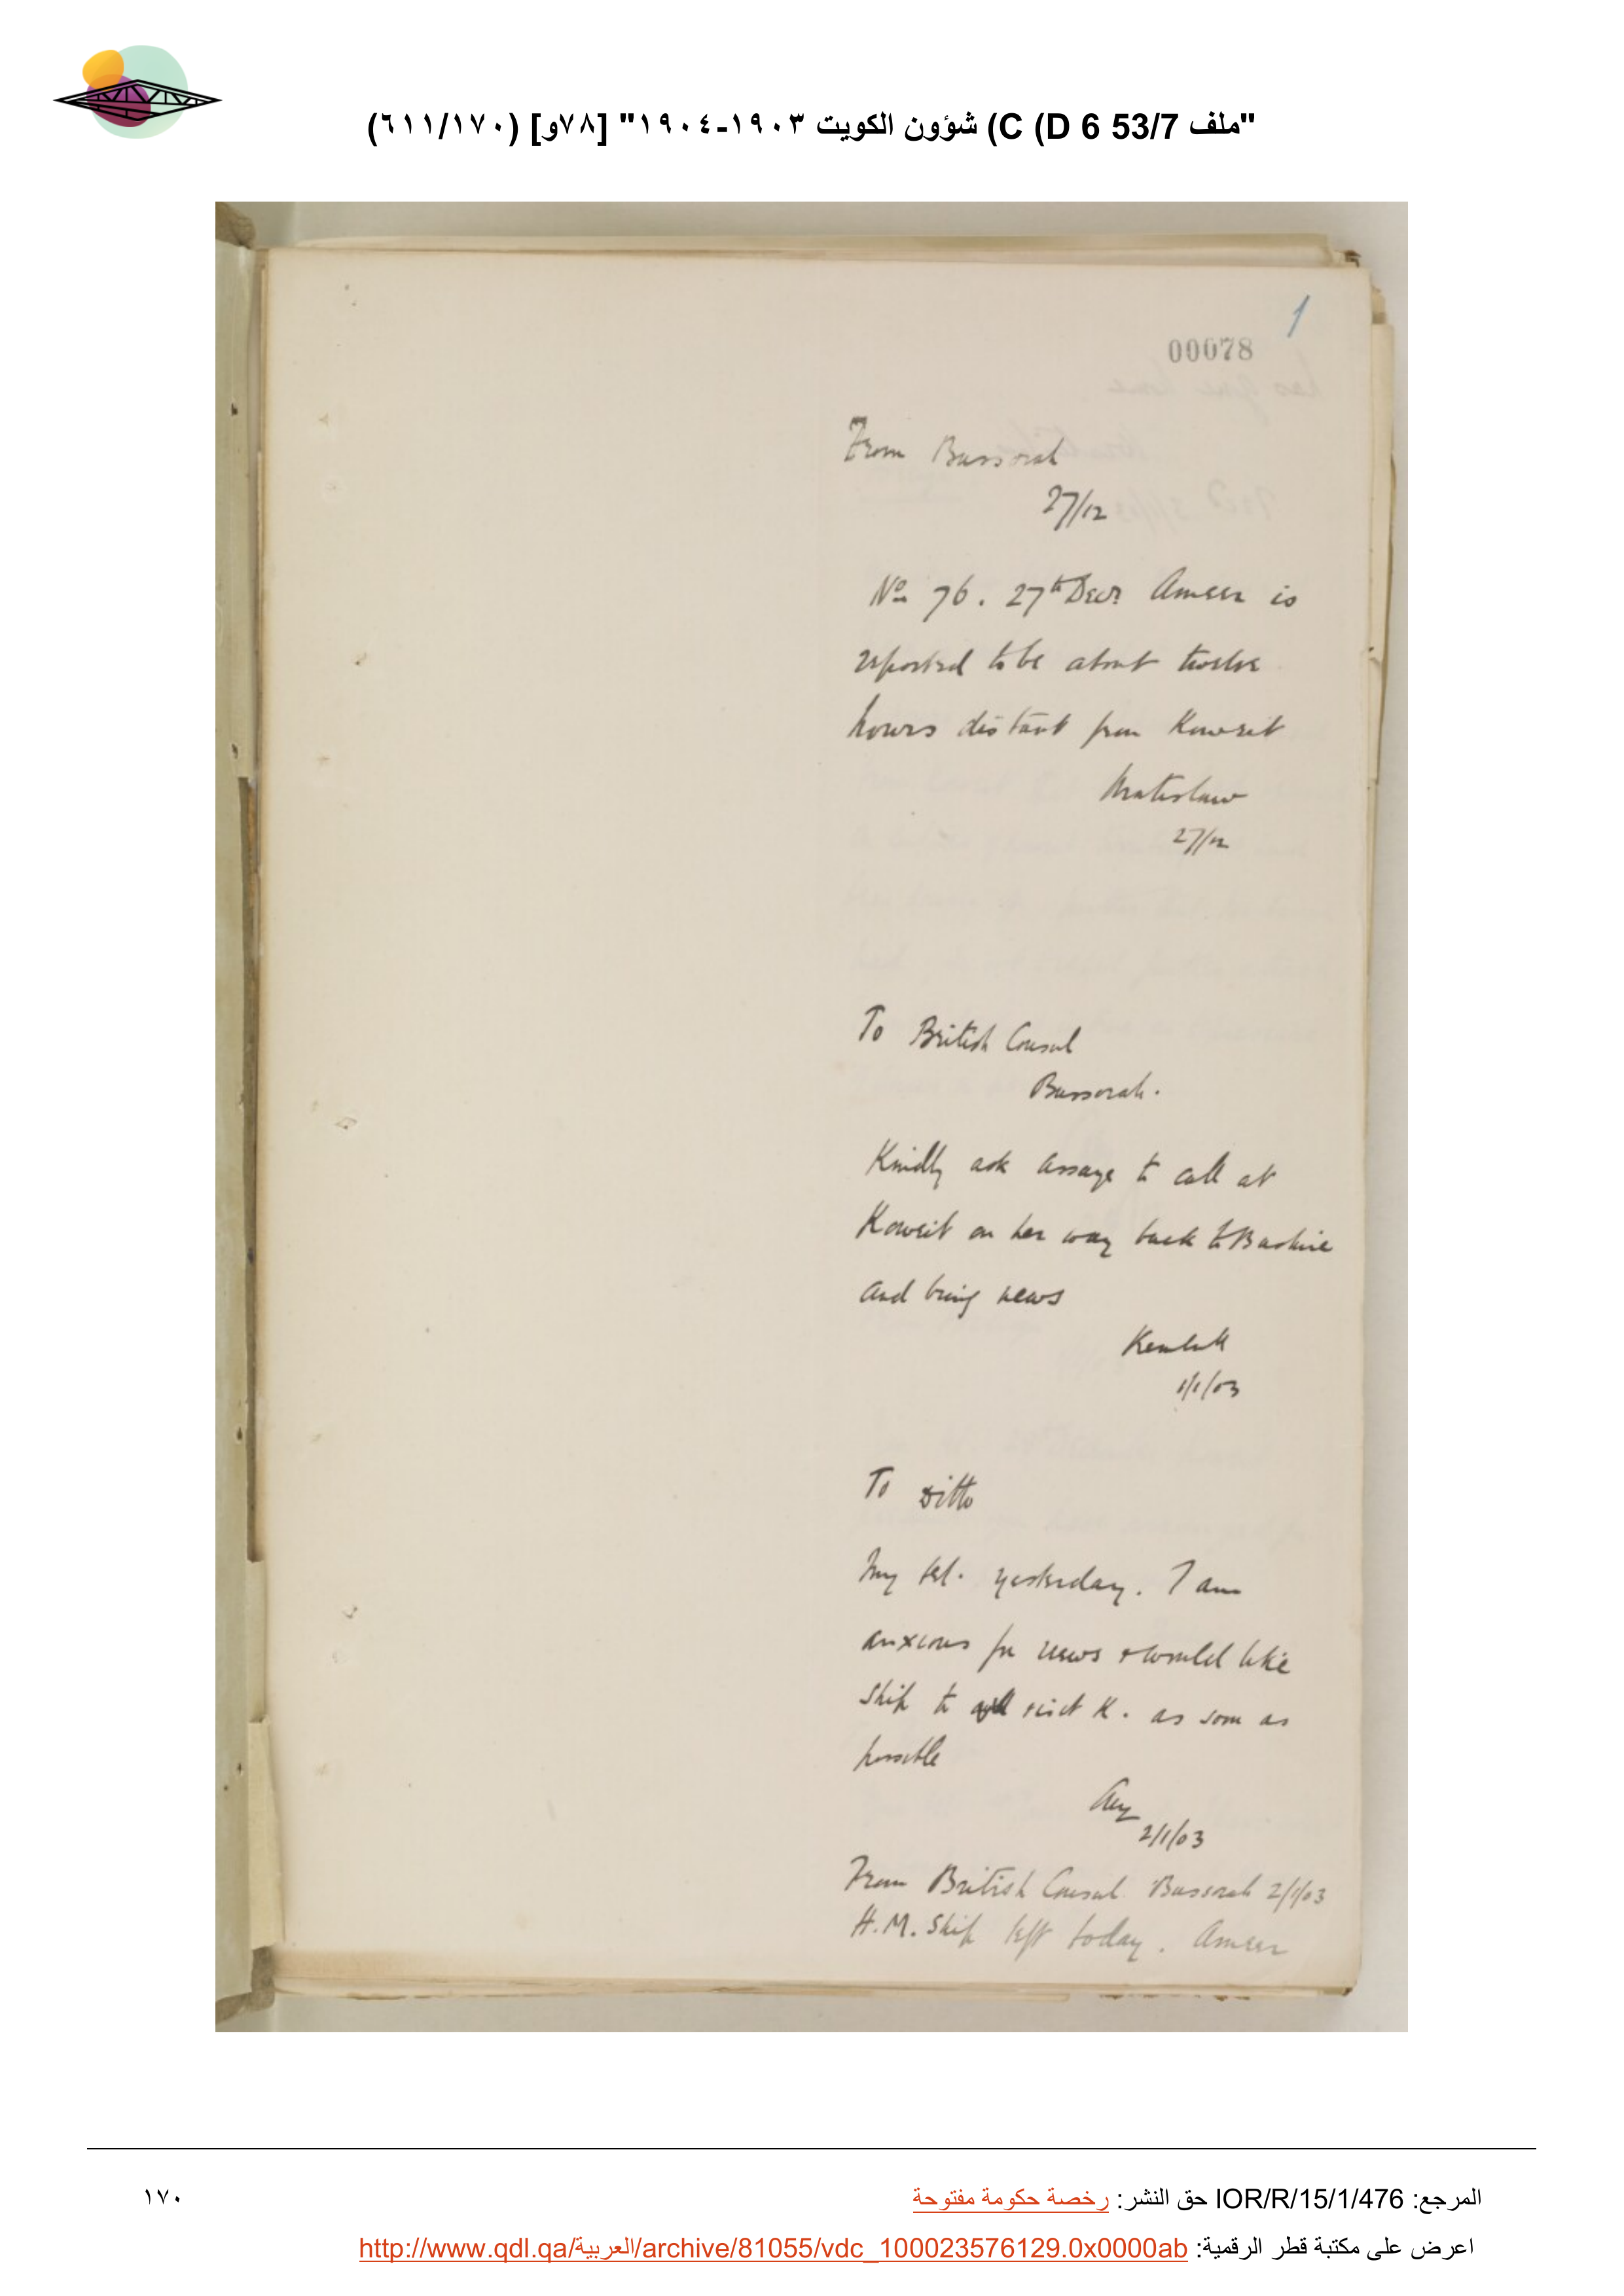 "ملف 53/7 D 6) C) شؤون الكويت ١٩٠٣-١٩٠٤" [٧٨و] (٦١١/١٧٠)
1
00078
From Bussorah
27/12
No 76. 27th Decr. Ameer is
reported to be about twelve
hours distant from Koweit
Wratislaw
27/12
To British Consul
Bussorah.
Kindly ask Assaye to call at
Koweit on her way back to Bushire
and bring news
Kemball
1/1/03
To Ditto
My tel. yesterday. I am
anxious for news & would like
ship to visit K. as soon as
possible
2/1/03
From British Consul Bussorah 2/1/03
H.M. Ship left today. Ameer
المرجع: IOR/R/15/1/476 حق النشر: رخصة حكومة مفتوحة
١٧٠
اعرض على مكتبة قطر الرقمية: http://www.qdl.qa/العربية/archive/81055/vdc_100023576129.0x0000ab